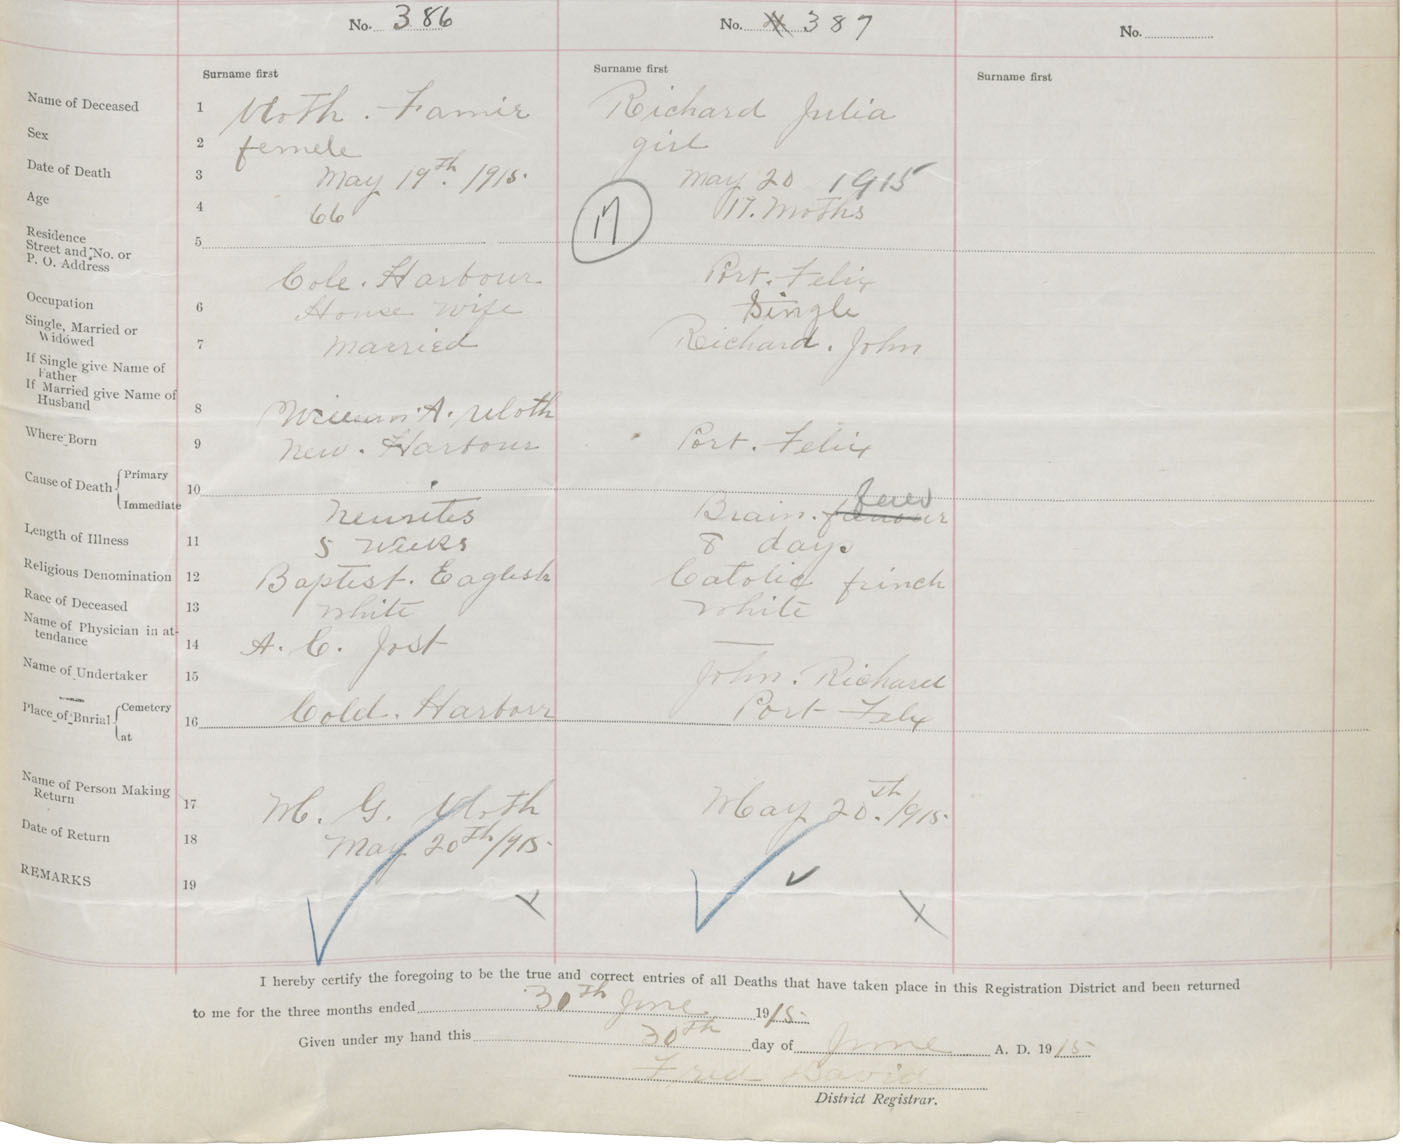 No. 386 No. 387 No.
Surname first Surname first Surname first
Name of Deceased 1 Richard Julia
Sex 2 femele girl
Date of Death 3 May 19th. /915. May 20 1915
Age 4 66 17 17. Moths
Residence
Street and No. or 5
P. O. Address Cole. Harbour Port. Felix
Occupation 6 House Wife Single
Single, Married or
Widowed 7 Married Richard. John
If Single give Name of
Father
If Married give Name of
Husband 8 A.
Where Born 9 New. Harbour Port. Felix
Cause of Death Primary 10
Immediate Neurites Brain. fever
Length of Illness 11 5 Weeks 8 days
Religious Denomination 12 Baptest. Eaglesh Catolic frinch
Race of Deceased 13 White White
Name of Physician in at-
tendance 14 A. C. Jost —
Name of Undertaker 15 John. Richard
Place of Burial Cemetery 16 Cold. Harbour Port Felix
at
Name of Person Making
Return 17 G. May 20th. /915.
Date of Return 18 May 20th /915.
REMARKS 19
I hereby certify the foregoing to be the true and correct entries of all Deaths that have taken place in this Registration District and been returned
to me for the three months ended 30th June 1915.
Given under my hand this 30th day of June A. D. 1915
Fred David
District Registrar.